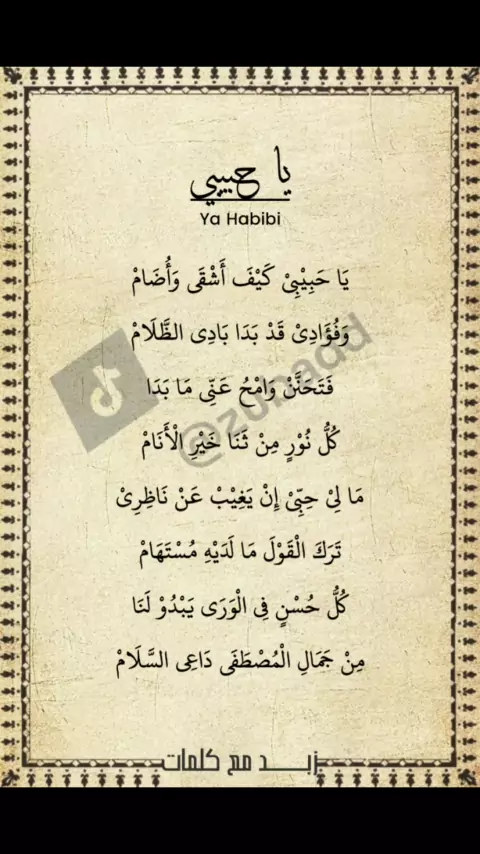 يا حبيبي
Ya Habibi
يَا حَبِيْبِيْ كَيْفَ أَشْقَى وَأُضَامْ
وَفُؤَادِيْ قَدْ بَدَا بَادِى الظَّلَامْ
فَتَحَنَّنْ وَامْحُ عَنِّى مَا بَدَا
كُلُّ نُوْرٍ مِنْ ثَنَا خَيْرِ الْأَنَامْ
مَا لِيْ حِبِّيْ إِنْ يَغِيْبْ عَنْ نَاظِرِيْ
تَرَكَ الْقَوْلَ مَا لَدَيْهِ مُسْتَهَامْ
كُلُّ حُسْنٍ فِى الْوَرَى يَبْدُوْ لَنَا
مِنْ جَمَالِ الْمُصْطَفَى دَاعِى السَّلَامْ
زبد مع كلمات